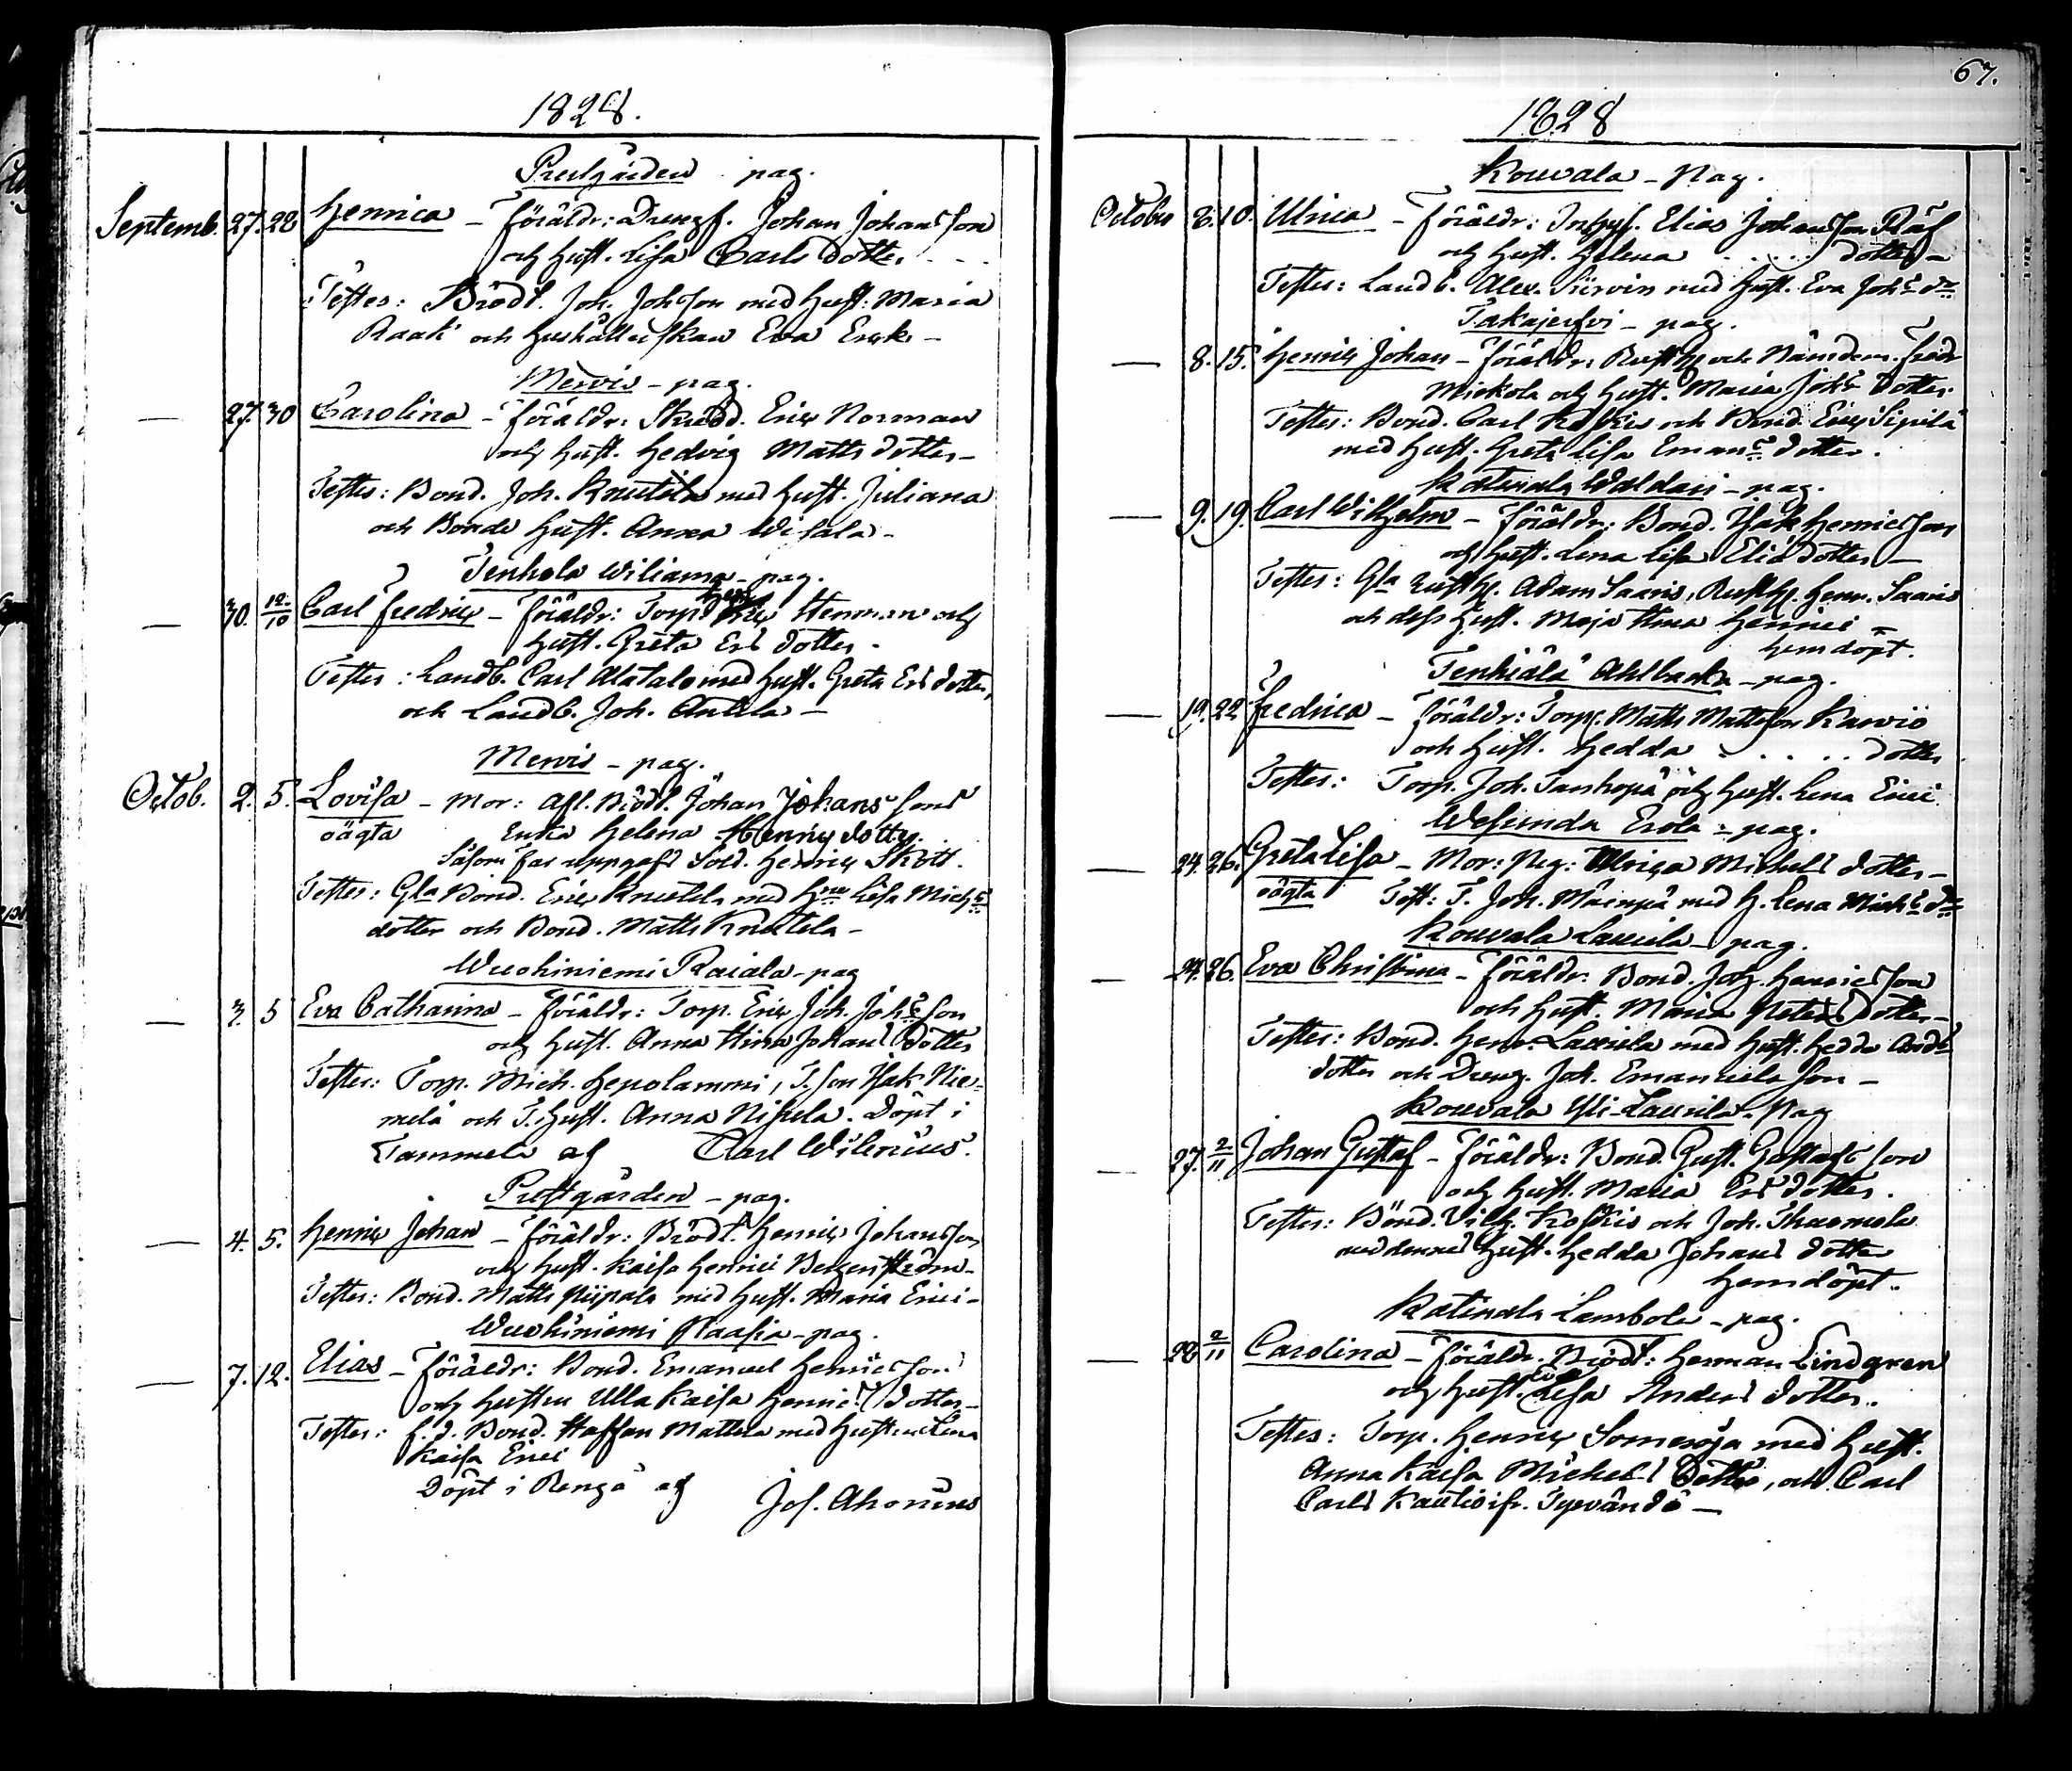 67.
1828.
Prestgården pag.
Septemb. 27. 28 Henrica – föräldr: Drengf. Johan Johansson
och hust. Lisa Carls dotter
Testes: Brödt. Joh. Johsson med hust: Maria
Raak och hushållerskan Eva Erick –
Mervis – pag.
— 27. 30 Carolina – föräldr: Skrädd. Eric Norman
och hust. Hedvig Matts dotter –
Testes: Bond. Joh. Knutila med hust. Juliana
och Bonde hust. Anna Wifala –
Tenhola Wiliama – pag.
— 30. 12/10 Carl Fredric – föräldr: Torp. Herman och
hust. Greta Ers dotter –
Testes: Landb. Carl Alatalo med hust. Greta Ers dotter,
och Landb. Joh. Antila –
Mervis – pag.
Octob. 2. 5. Lovisa – Mor: Afl. Brödt. Johan Johans sons
oägta Enka Helena Henrics dotter.
Såsom far uppgafs Sold. Henric Skott.
Testes: Gla Bond. Eric Knutila med Hru Lisa Mich:s
dotter och Bond. Matts Knutila –
Wuohiniemi Raiala – pag
— 3. 5 Eva Catharina – föräldr: Torp. Eric Joh. Joh:s son
och hust. Anna Stina Johans Dotter
Testes: Torp. Mich. Hepolammi, T. son Isak Nie-
melä och T. hust. Anna Nikula. Döpt i
Tammela af Carl Wilenius.
Prestgården – pag.
— 4. 5. Henric Johan – föräldr: Brödt. Henric Johansson
och hust. Kaisa Henrici Bergenström –
Testes: Bond. Matts Piipala med hust. Maria Erici –
Wuohiniemi Raasia – pag.
— 7. 12. Elias – föräldr: Bond. Emanuel Henricsson
och hustru Ulla Kaisa Henrics dotter –
Testes: f. d. Bond. Staffan Mattila med hustru Lena
Kaisa Erici
Döpt i Rengo af Jos. Ahonius
1828
Kouvala – Pag.
October 8. 10. Ulrica – föräldr: Inhys. Elias Johansson Räf
och hust. Helena . . . . . dotter –
Testes: Landb. Alex. Siirvin med hust. Eva Joh:s dr
Takajerfvi – pag.
— 8. 15. Henric Johan – föräldr: Rusth. och Nämdem. Fredr
Mickola och hust. Maria Joh:s dotter
Testes: Bond. Carl Koskis och Bond. Eric Sipilä
med hust. Greta Lisa Eman:s dotter.
Katinala Waldari – pag.
— 9. 19. Carl Wilhelm – föräldr: Bond. Isak Henricsson
och hust. Lena Lisa Elias dotter –
Testes: Gla rusth. Adam Saaris, Rusth. Henr. Saaris
och dess hust. Maja Stina Henrici –
hemdöpt.
Tenhiälä Ahlbacka – pag.
— 19. 22 Fredrica – föräldr: Torp. Matts Mattsson Karviö
och hust. Hedda . . . . . dotter
Testes: Torp. Joh. Tanhopä och hust. Lena Erici
Wesunda Erola – pag.
— 24. 26. Greta Lisa – Mor: Pig: Ulrica Michels dotter –
oägta Test: T. Joh. Mäenpä med h. Lena Mich:s dr
Kouvala Laurila – pag.
— 24. 26. Eva Christina – föräldr. Bond. Joh. Henricsson
och hust. Maria Peters dotter –
Testes: Bond. Henr. Laurila med hust. Hedda And:s
dotter och Dreng. Joh. Emanuels son –
Kouvala Yli-Laurila – Pag
— 27. 2/11 Johan Gustaf – föräldr: Bond. Gust. Gustafs son
och hust. Maria Ers dotter.
Testes: Bond. Vilh. Koskis och Joh. Thuomola
med dennes hust. Hedda Johans dotter
hemdöpt.
Katinala Lambola – pag.
— 28 2/11 Carolina – föräldr. Brödt: Herman Lindgren
och hust. Lisa Anders dotter.
Testes: Torp. Henric Someroja med hust.
Anna Kaisa Michels Dotter, och Carl
Carls Kautio ifr. Tyrvändö –